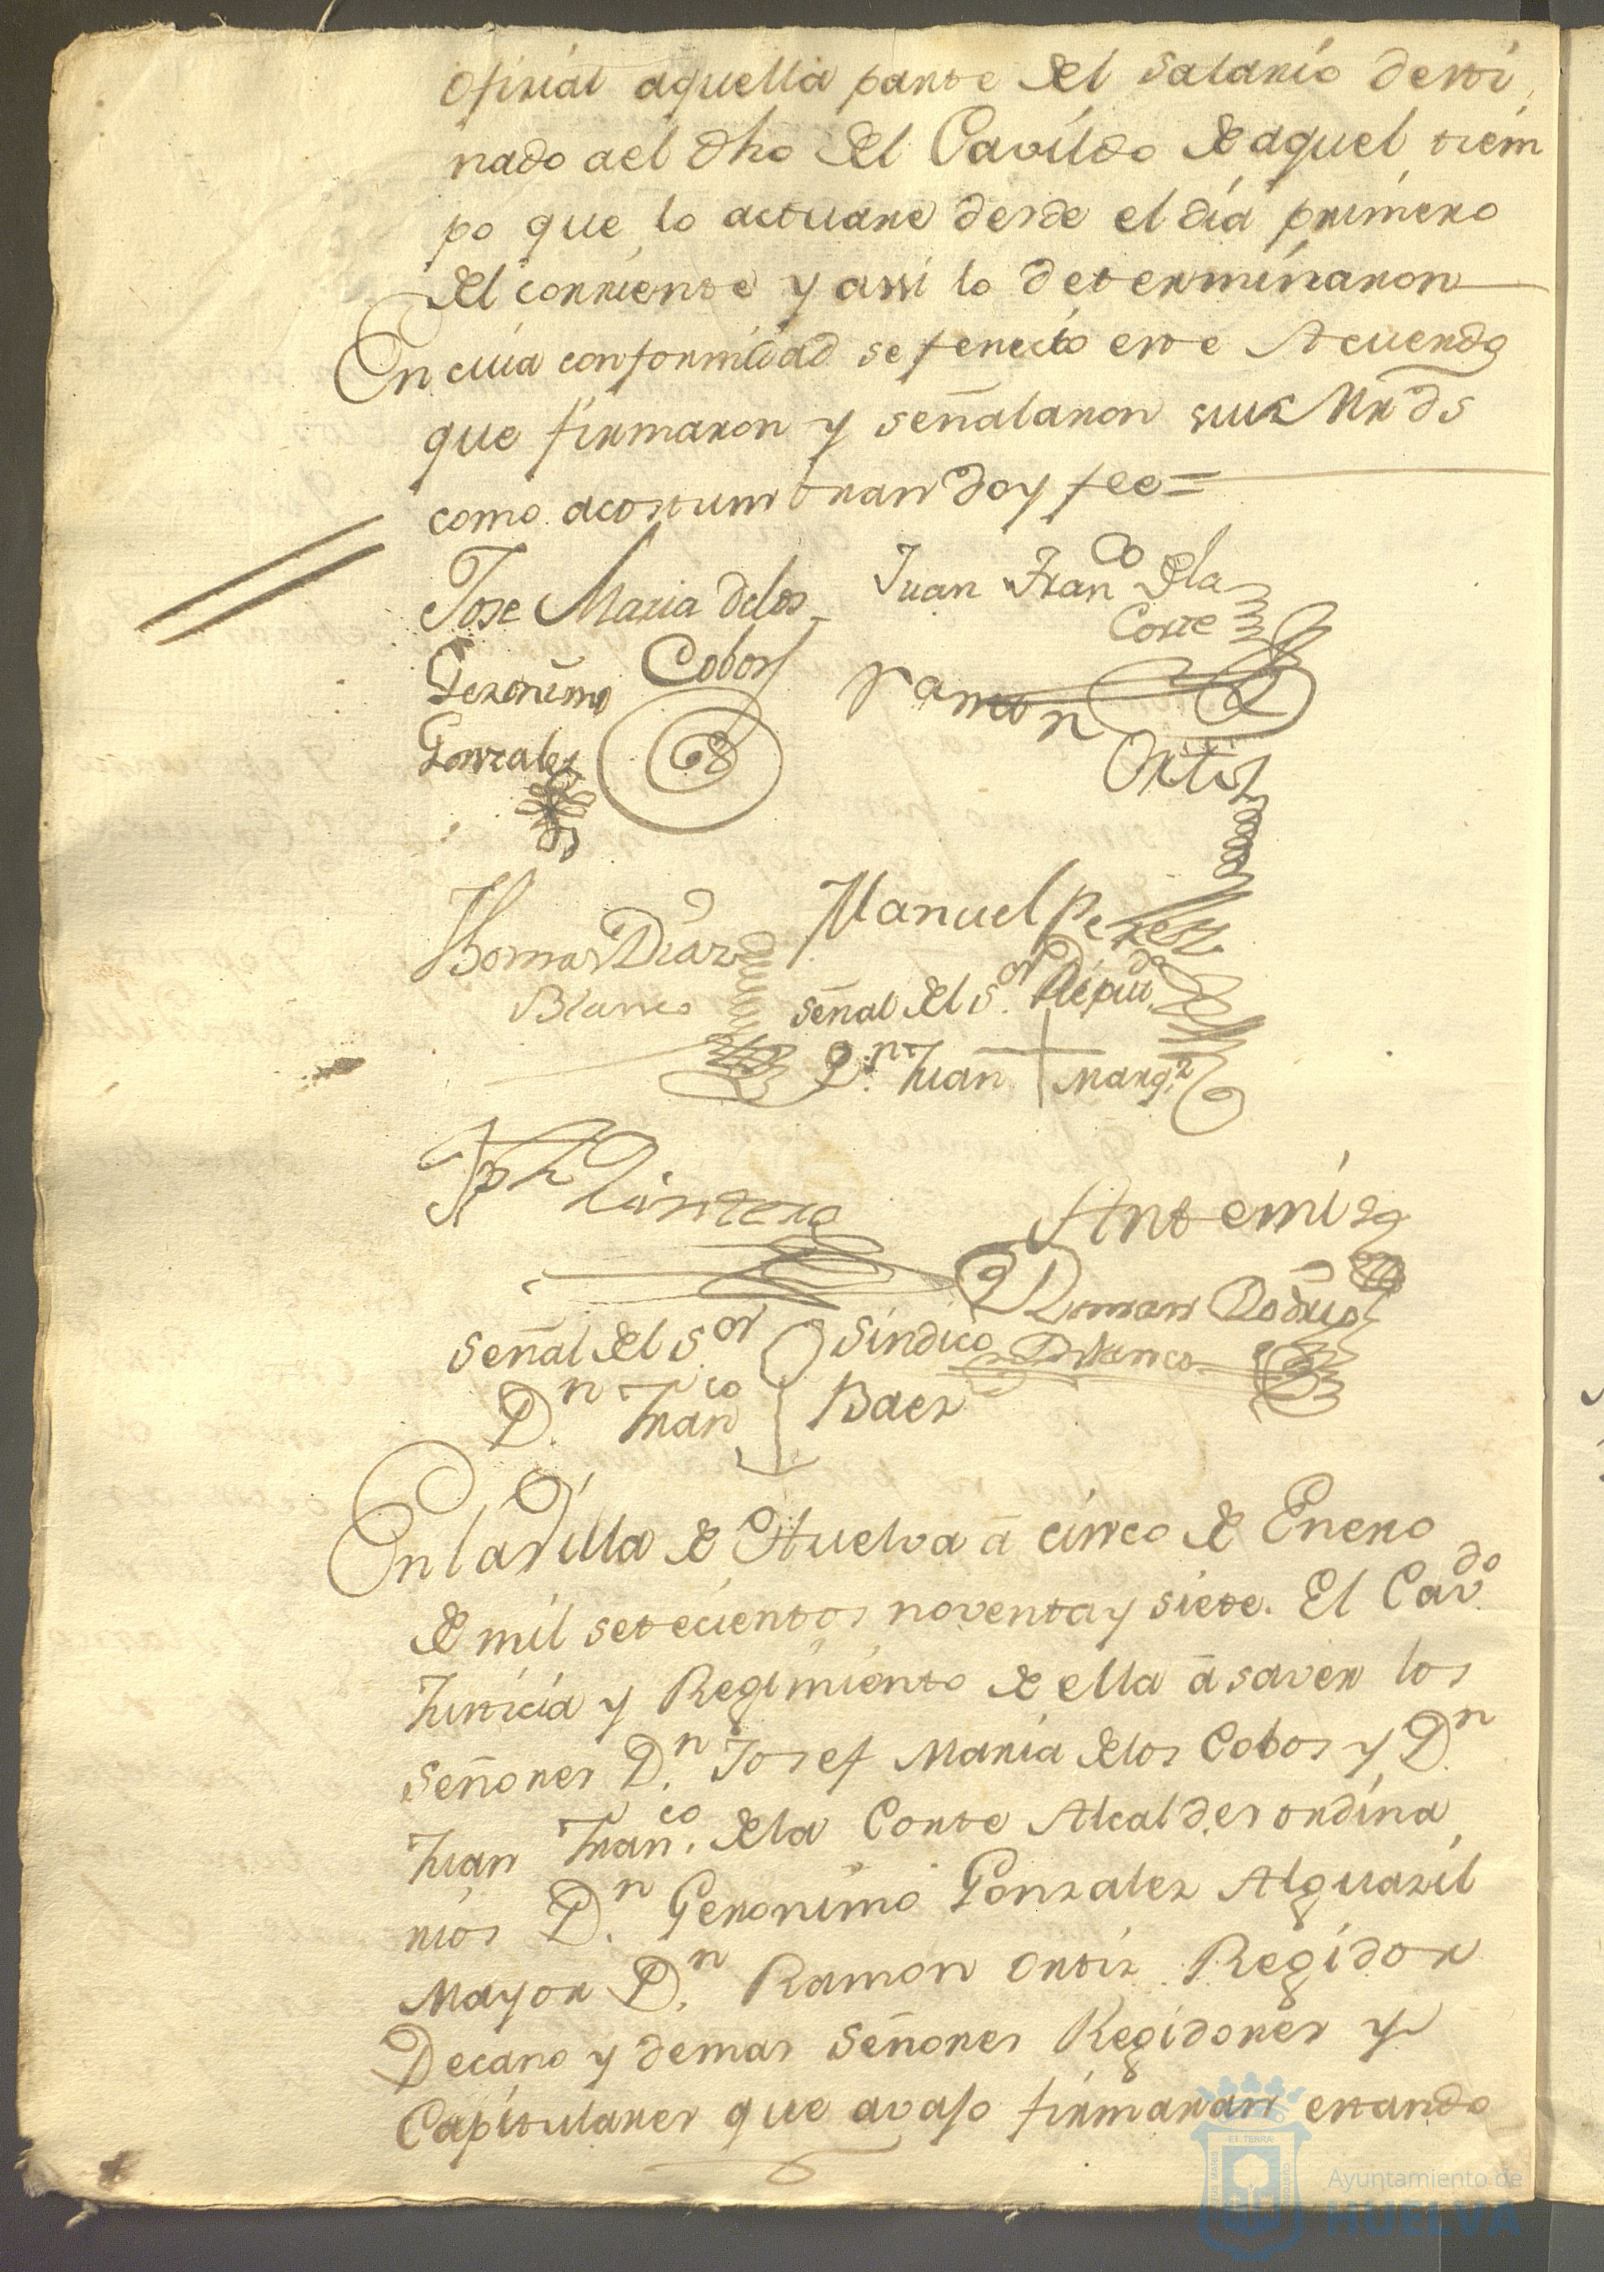 oficial aquella parte del salario desti
nado a el dho del Cavildo de aquel tiem
po que lo actuare desde el dia primero
del corriente y assi lo determinaron
En cuia conformidad se fenecio este Acuerdo
que firmaron y señalaron sus Mrds
como acostumbran doy fee=
Jose Maria de los Cobos
Juan Franco de la Corte
Geronimo Gonzales
Ramon Ortiz
Thomas Diaz Blanco
Manuel Perez
señal del Sor Diputdo
Dn. Juan + Marqz
Jph Quintero
Ante mi
Roman Rodrio
Blanco
señal del Sor Sindico
Dn Franco Baez
En la Villa de Huelva a cinco de Enero
de mil setecientos noventa y siete. El Cavdo
Justicia y Regimiento de ella a saver los
señores Dn. Josef Maria de los Cobos y Dn.
Juan Franco. de la Corte Alcaldes ordina
rios Dn. Geronimo Gonzalez Alguazil
Mayor Dn. Ramon Ortiz Regidor
Decano y demas señores Regidores y
Capitulares que avajo firmaran estando
Ayuntamiento de
HUELVA